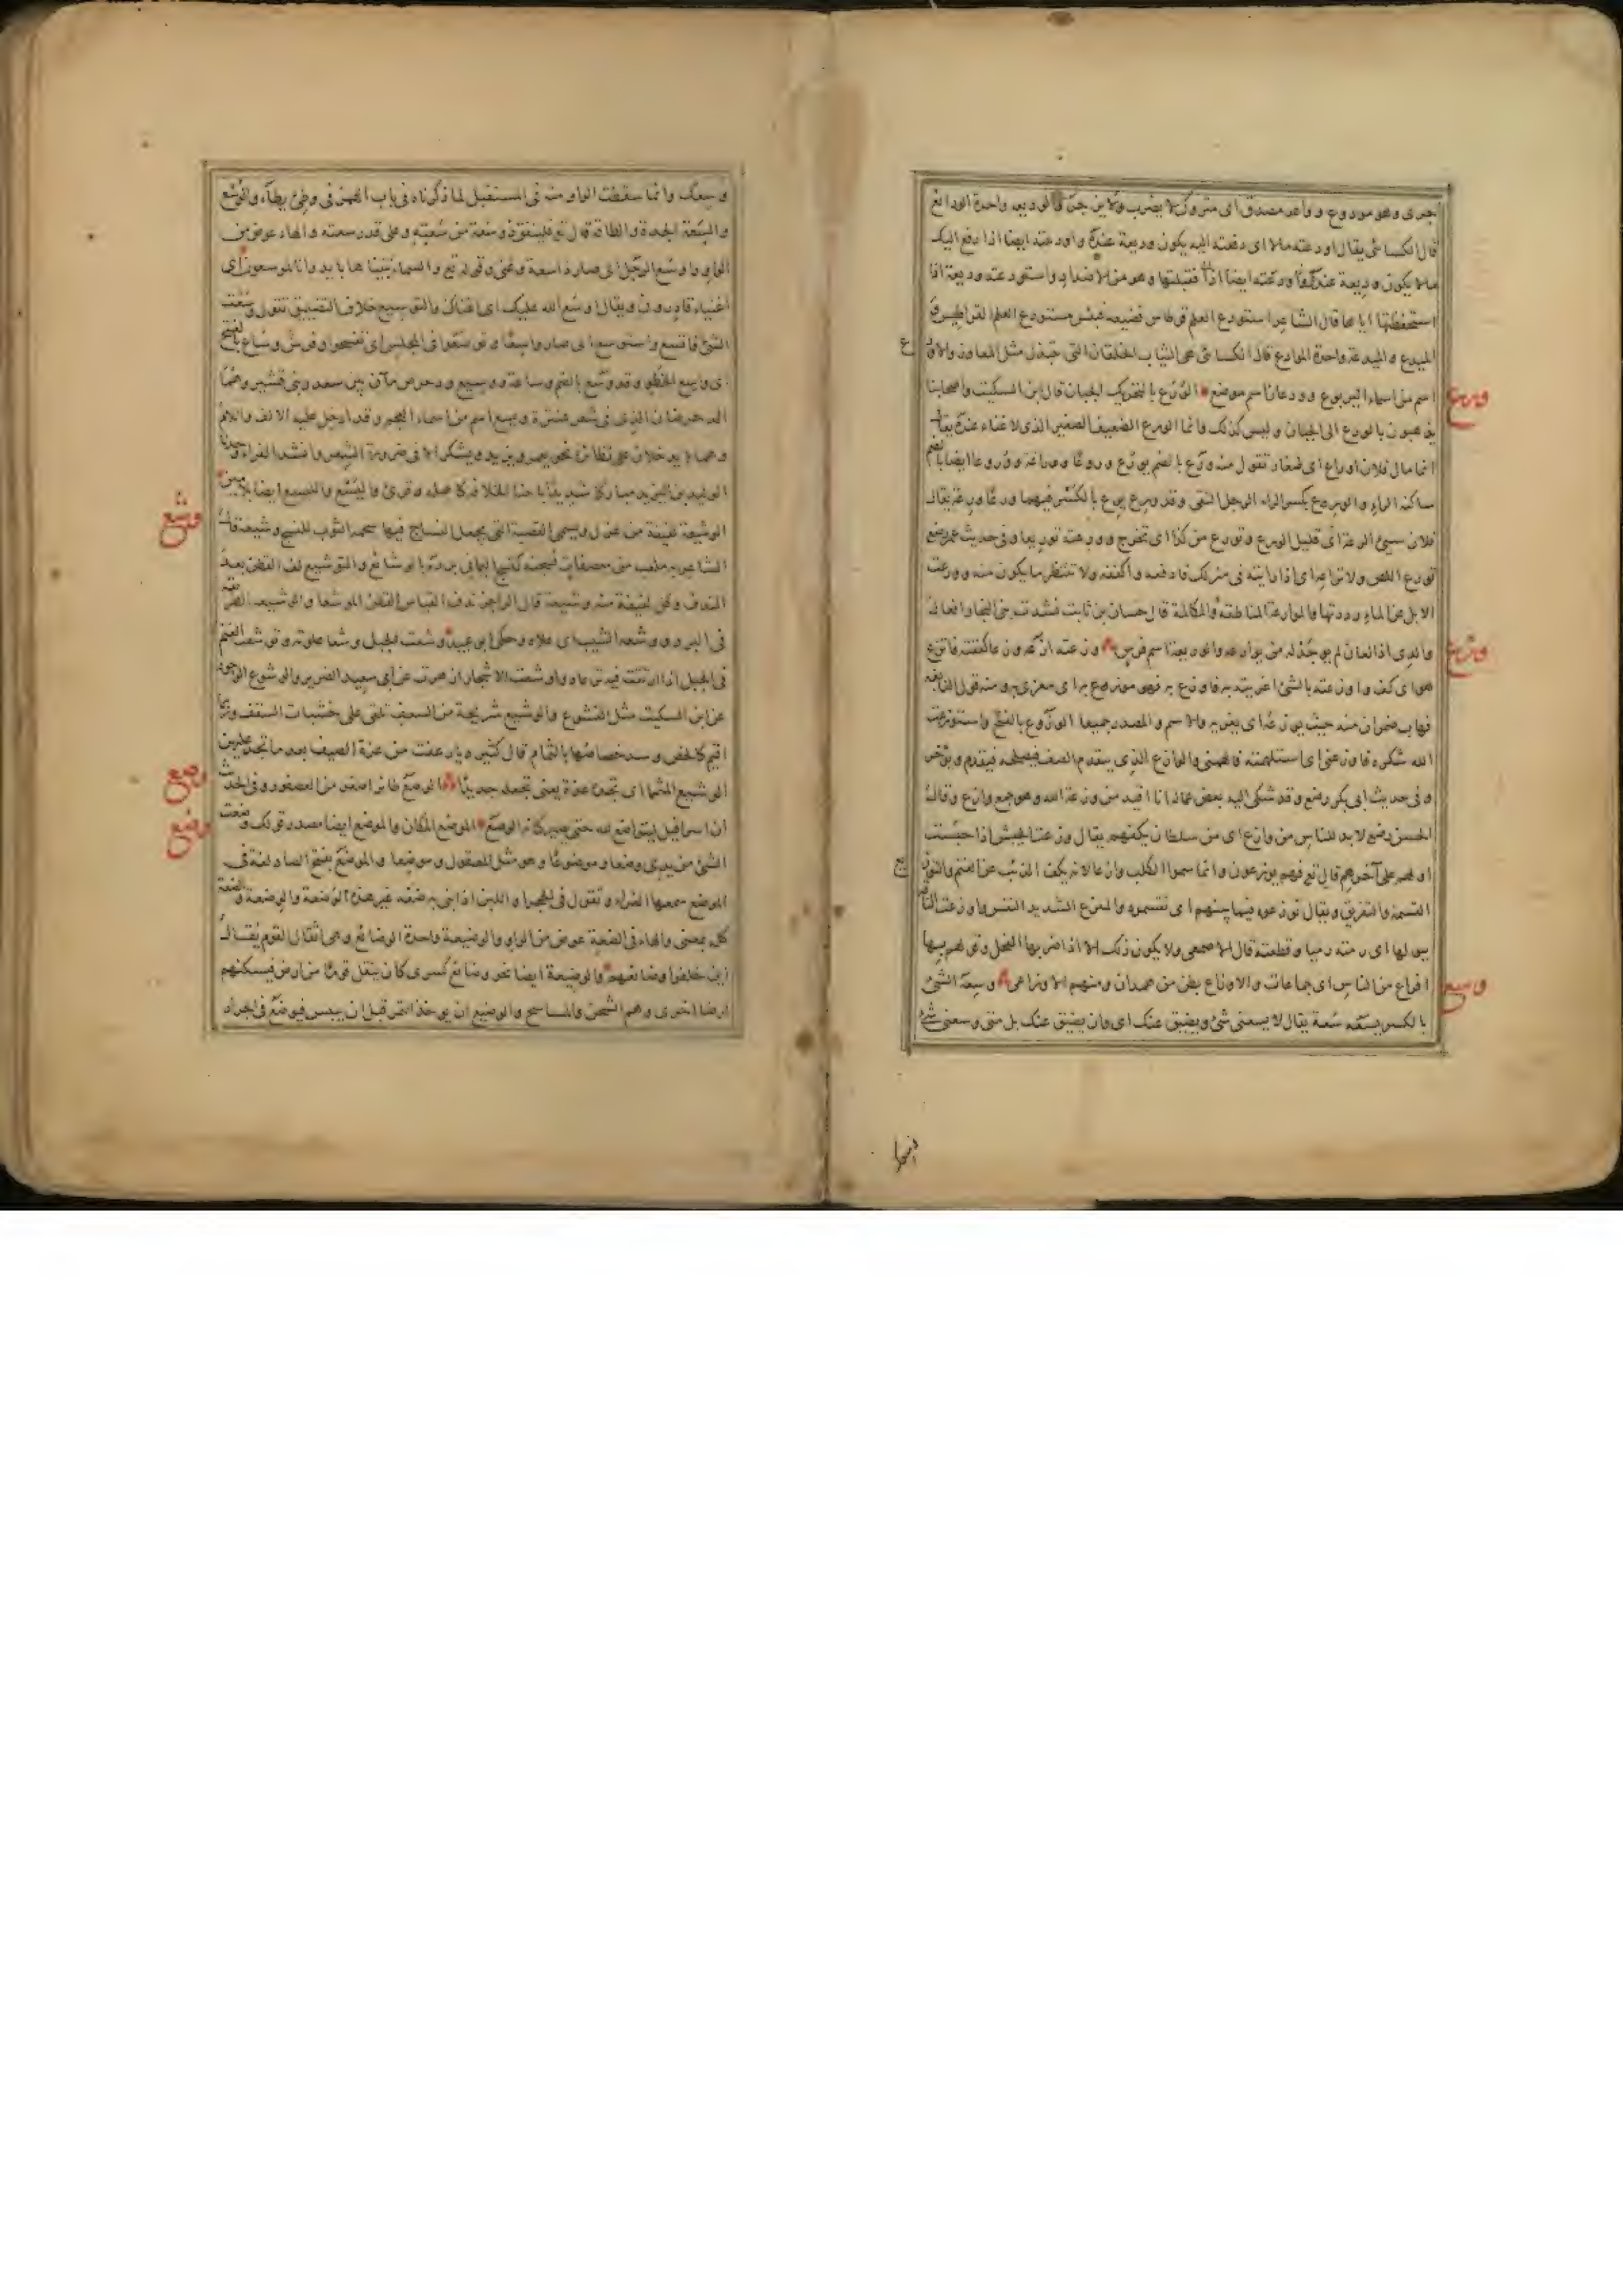 جرى وهو مودوع وواعد مصدق اى متروك لا يضرب ولا يزجر والوديعة واحدة الودائع
قال الكسائى يقال اودعته مالا اى دفعته اليه يكون وديعة عنده واودعته ايضا اذا دفع اليك
مالا يكون وديعة عندك فقبلتها وهو من الاضداد واستودعته وديعة اذا
استحفظتها اياها قال الشاعر استودع العلم قرطاس فضيعه فبئس مستودع العلم القراطيس
الميدع والميدعة واحدة الموادع قال الكسائى هى الثياب الخلقان التى تبتذل مثل المعاوز
اسم من اسماء اليربوع وودعان اسم موضع الورع بالتحريك الجبان قال ابن السكيت واصحابنا
يذهبون بالورع الى الجبان وليس كذلك وانما الورع الضعيف الصغير الذى لا غناء عنده يقال
انما مال فلان اوراع اى صغار تقول منه ورع بالضم يورع وروعا ووراعة وورعا ايضا بالضم
ساكنة الراء والورع بكسر الراء الرجل التقى وقد ورع يرع بالكسر فيهما ورعا ورعة يقال
فلان سيئ الرعة اى قليل الورع وتورع من كذا اى تحرج وورعته توريعا وفى حديث عمر رضع
ورع اللص ولا تراعه اى اذا رايته فى منزلك فادفعه واكففه ولا تنتظر ما يكون منه وورعت
الابل عن الماء رددتها والموارعة المناطقة والمكالمة قال حسان بن ثابت نشدت بنى النجار افعال
والدى اذا لعان لم يوجد له من يوارعه والوريعة اسم فرس وزعته ازعه وزعا كففته فاتزع
هو اى كف واوزعته بالشئ اغريته به فاوزع به فهو موزع به اى مغرى به ومنه قول النابغة
فهاب ضمران منه حيث يوزعه اى يغريه والاسم والمصدر جميعا الوزوع بالفتح واستوزعت
الله شكره فاوزعنى اى استلهمته فالهمنى والوازع الذى يتقدم الصف فيصلحه فيقدم ويؤخر
وفى حديث ابى بكر رضع وقد شكى اليه بعض عماله انا اقيد من وزعة الله وهو جمع وازع وقال
الحسن رضع لا بد للناس من وازع اى من سلطان يكفهم يقال وزعت الجيش اذا حبست
اولهم على آخرهم قال تع فهم يوزعون وانما سموا الكلب وازعا لانه يكف الذئب عن الغنم والتوزيع
القسمة والتفريق ويقال توزعوه فيما بينهم اى تقسموه والمتزع الشديد النفس واوزعت الناقة
ببولها اى رمته رميا وقطعته قال الاصمعى ولا يكون ذلك الا اذا ضربها الفحل وقولهم بها
اوزاع من الناس اى جماعات والاوزاع بطن من همدان ومنهم الاوزاعى وسعه الشئ
بالكسر يسعه سعة يقال لا يسعنى شئ ويضيق عنك اى وان يضيق عنك بل متى وسعنى شئ
ورع
وزع
وسع
وسعك وانما سقطت الواو منه فى المستقبل لما ذكرناه فى باب الهمز فى وطئ يطأ والوسع
والسعة الجدة والطاقة قال تع لينفق ذو سعة من سعته وعلى قدر سعته والهاء عوض من
الواو واوسع الرجل اى صار ذا سعة وغنى وقوله تع والسماء بنيناها بايد وانا لموسعون اى
اغنياء قادرون ويقال اوسع الله عليك اى اغناك والتوسيع خلاف التضييق تقول وسعت
الشئ فاتسع واستوسع اى صار واسعا وتوسعوا فى المجلس اى تفسحوا وفرس وساع بالفتح
اى واسع الخطو وقد وسع بالضم وساعة ووسيع ودحرض مآان بين سعد وبنى قشير وهما
الدحرضان الذى فى شعر عنترة ويسع اسم من اسماء العجم وقد ادخل عليه الالف واللام
وهما لا يدخلان على نظائره نحو يعمر ويزيد ويشكر الا فى ضرورة الشعر وانشد الفراء وجدنا
الوليد بن اليزيد مباركا شديدا باحناء الخلافة كاهله وقرئ واليسع والليسع ايضا بلامين
الوشيعة لفيفة من غزل وتسمى القصبة التى يجعل النساج فيها لحمة الثوب للنسج وشيعة قال
الشاعر به ملعب من معصفات نسجنه كنسج اليمانى برده بالوشائع والتوشيع لف القطن بعد
الندف وكل لفيفة منه وشيعة قال الراجز ندف القياس القطن الموشعا والوشيعة الطريقة
فى البرد ووشعه الشيب اى علاه وحكى ابو عبيد وشعت الجبل وشعا علوته وتوشعت الغنم
فى الجبل اذا ارتقت فيه ترعاه واوشعت الاشجار ازهرت عن ابى سعيد الضرير والوشوع الوجور
عن ابن السكيت مثل النشوع والوشيع شريجة من السعف تلقى على خشبات السقف وربما
اقيم كالخص وسد خصاصها بالثمام قال كثير ديار عفت من عزة الصيف بعد ما تجد عليهن
الوشيع المثمما اى تجد عزة يعنى تجعله جديدا الوصع طائر اصغر من العصفور وفى الحديث
ان اسرافيل ليتواضع لله حتى يصير كانه الوصع الموضع المكان والموضع ايضا مصدر قولك وضعت
الشئ من يدى وضعا وموضوعا وهو مثل المعقول وموضعا والموضع بفتح الضاد لغة فى
الموضع سمعها الفراء وتقول فى الحجر او اللبن اذا بنى به ضعه غير هذه الوضعة والوضعة والضعة
كله بمعنى والهاء فى الضعة عوض من الواو والوضيعة واحدة الوضائع وهى اثقال القوم يقال
اين خلفوا وضائعهم والوضيعة ايضا نحو وضائع كسرى كان ينقل قوما من ارض فيسكنهم
ارضا اخرى وهم الشحن والمسالح والوضيع ان يوخذ التمر قبل ان ييبس فيوضع فى الجرار
وشع
وصع
وضع